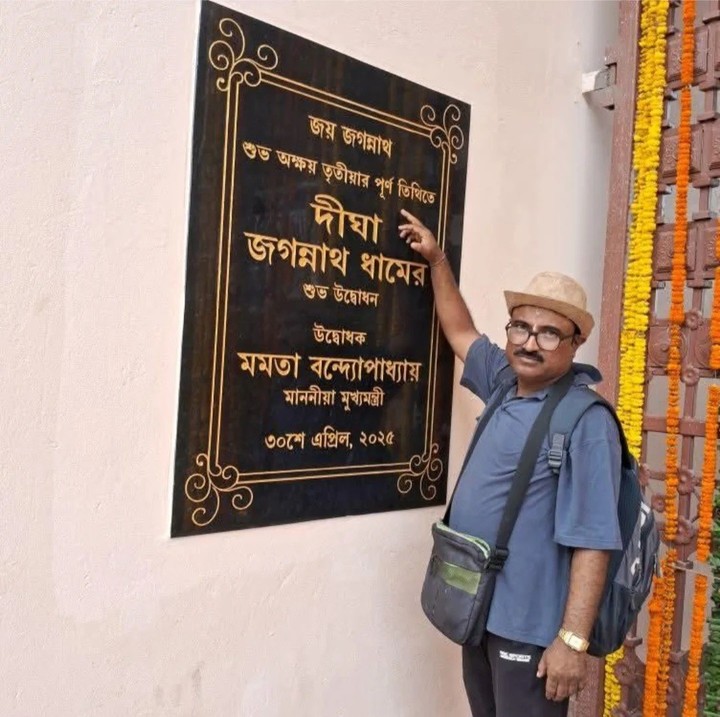 জয় জগন্নাথ
শুভ অক্ষয় তৃতীয়ার পূর্ণ তিথিতে
দীঘা
জগন্নাথ ধামের
শুভ উদ্বোধন
উদ্বোধক
মমতা বন্দ্যোপাধ্যায়
মাননীয়া মুখ্যমন্ত্রী
৩০শে এপ্রিল, ২০২৫